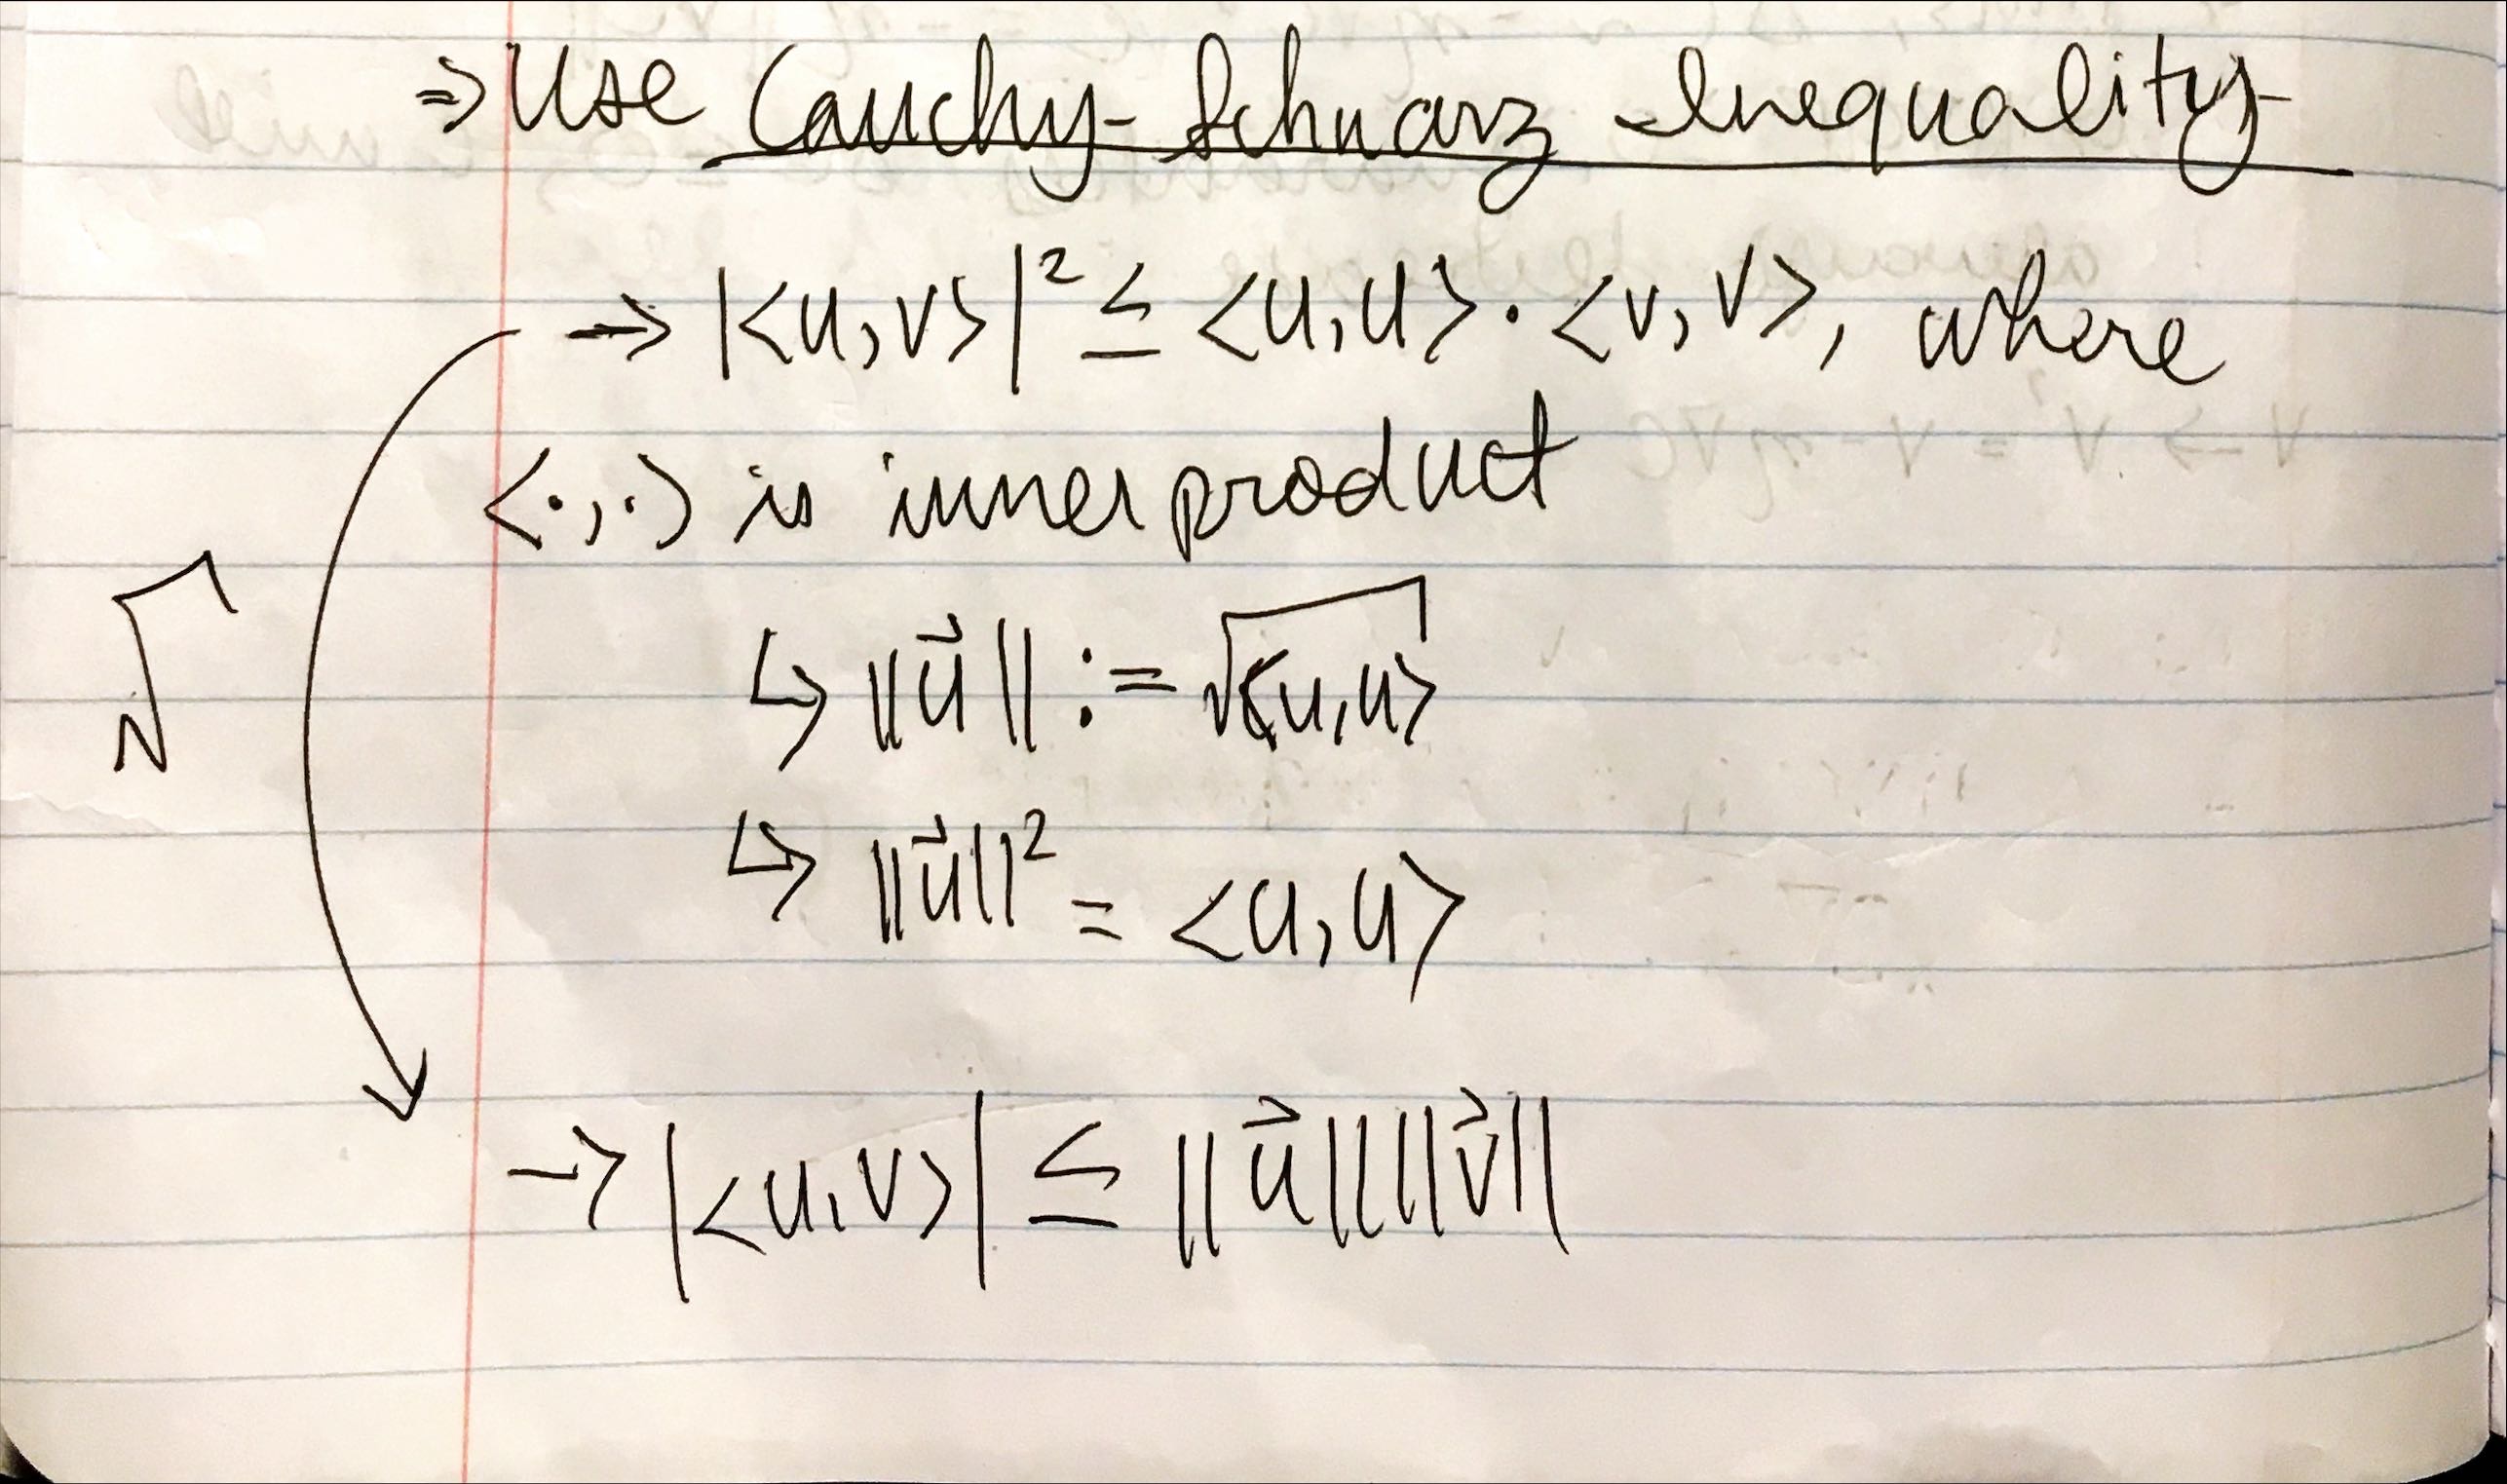 ⇒ Use Cauchy-Schwarz Inequality
→ |<u,v>|² ≤ <u,u>·<v,v>, where
<·,·> is inner product
√
↳ ||u⃗|| := √<u,u>
↳ ||u⃗||² = <u,u>
→ |<u,v>| ≤ ||u⃗|| ||v⃗||